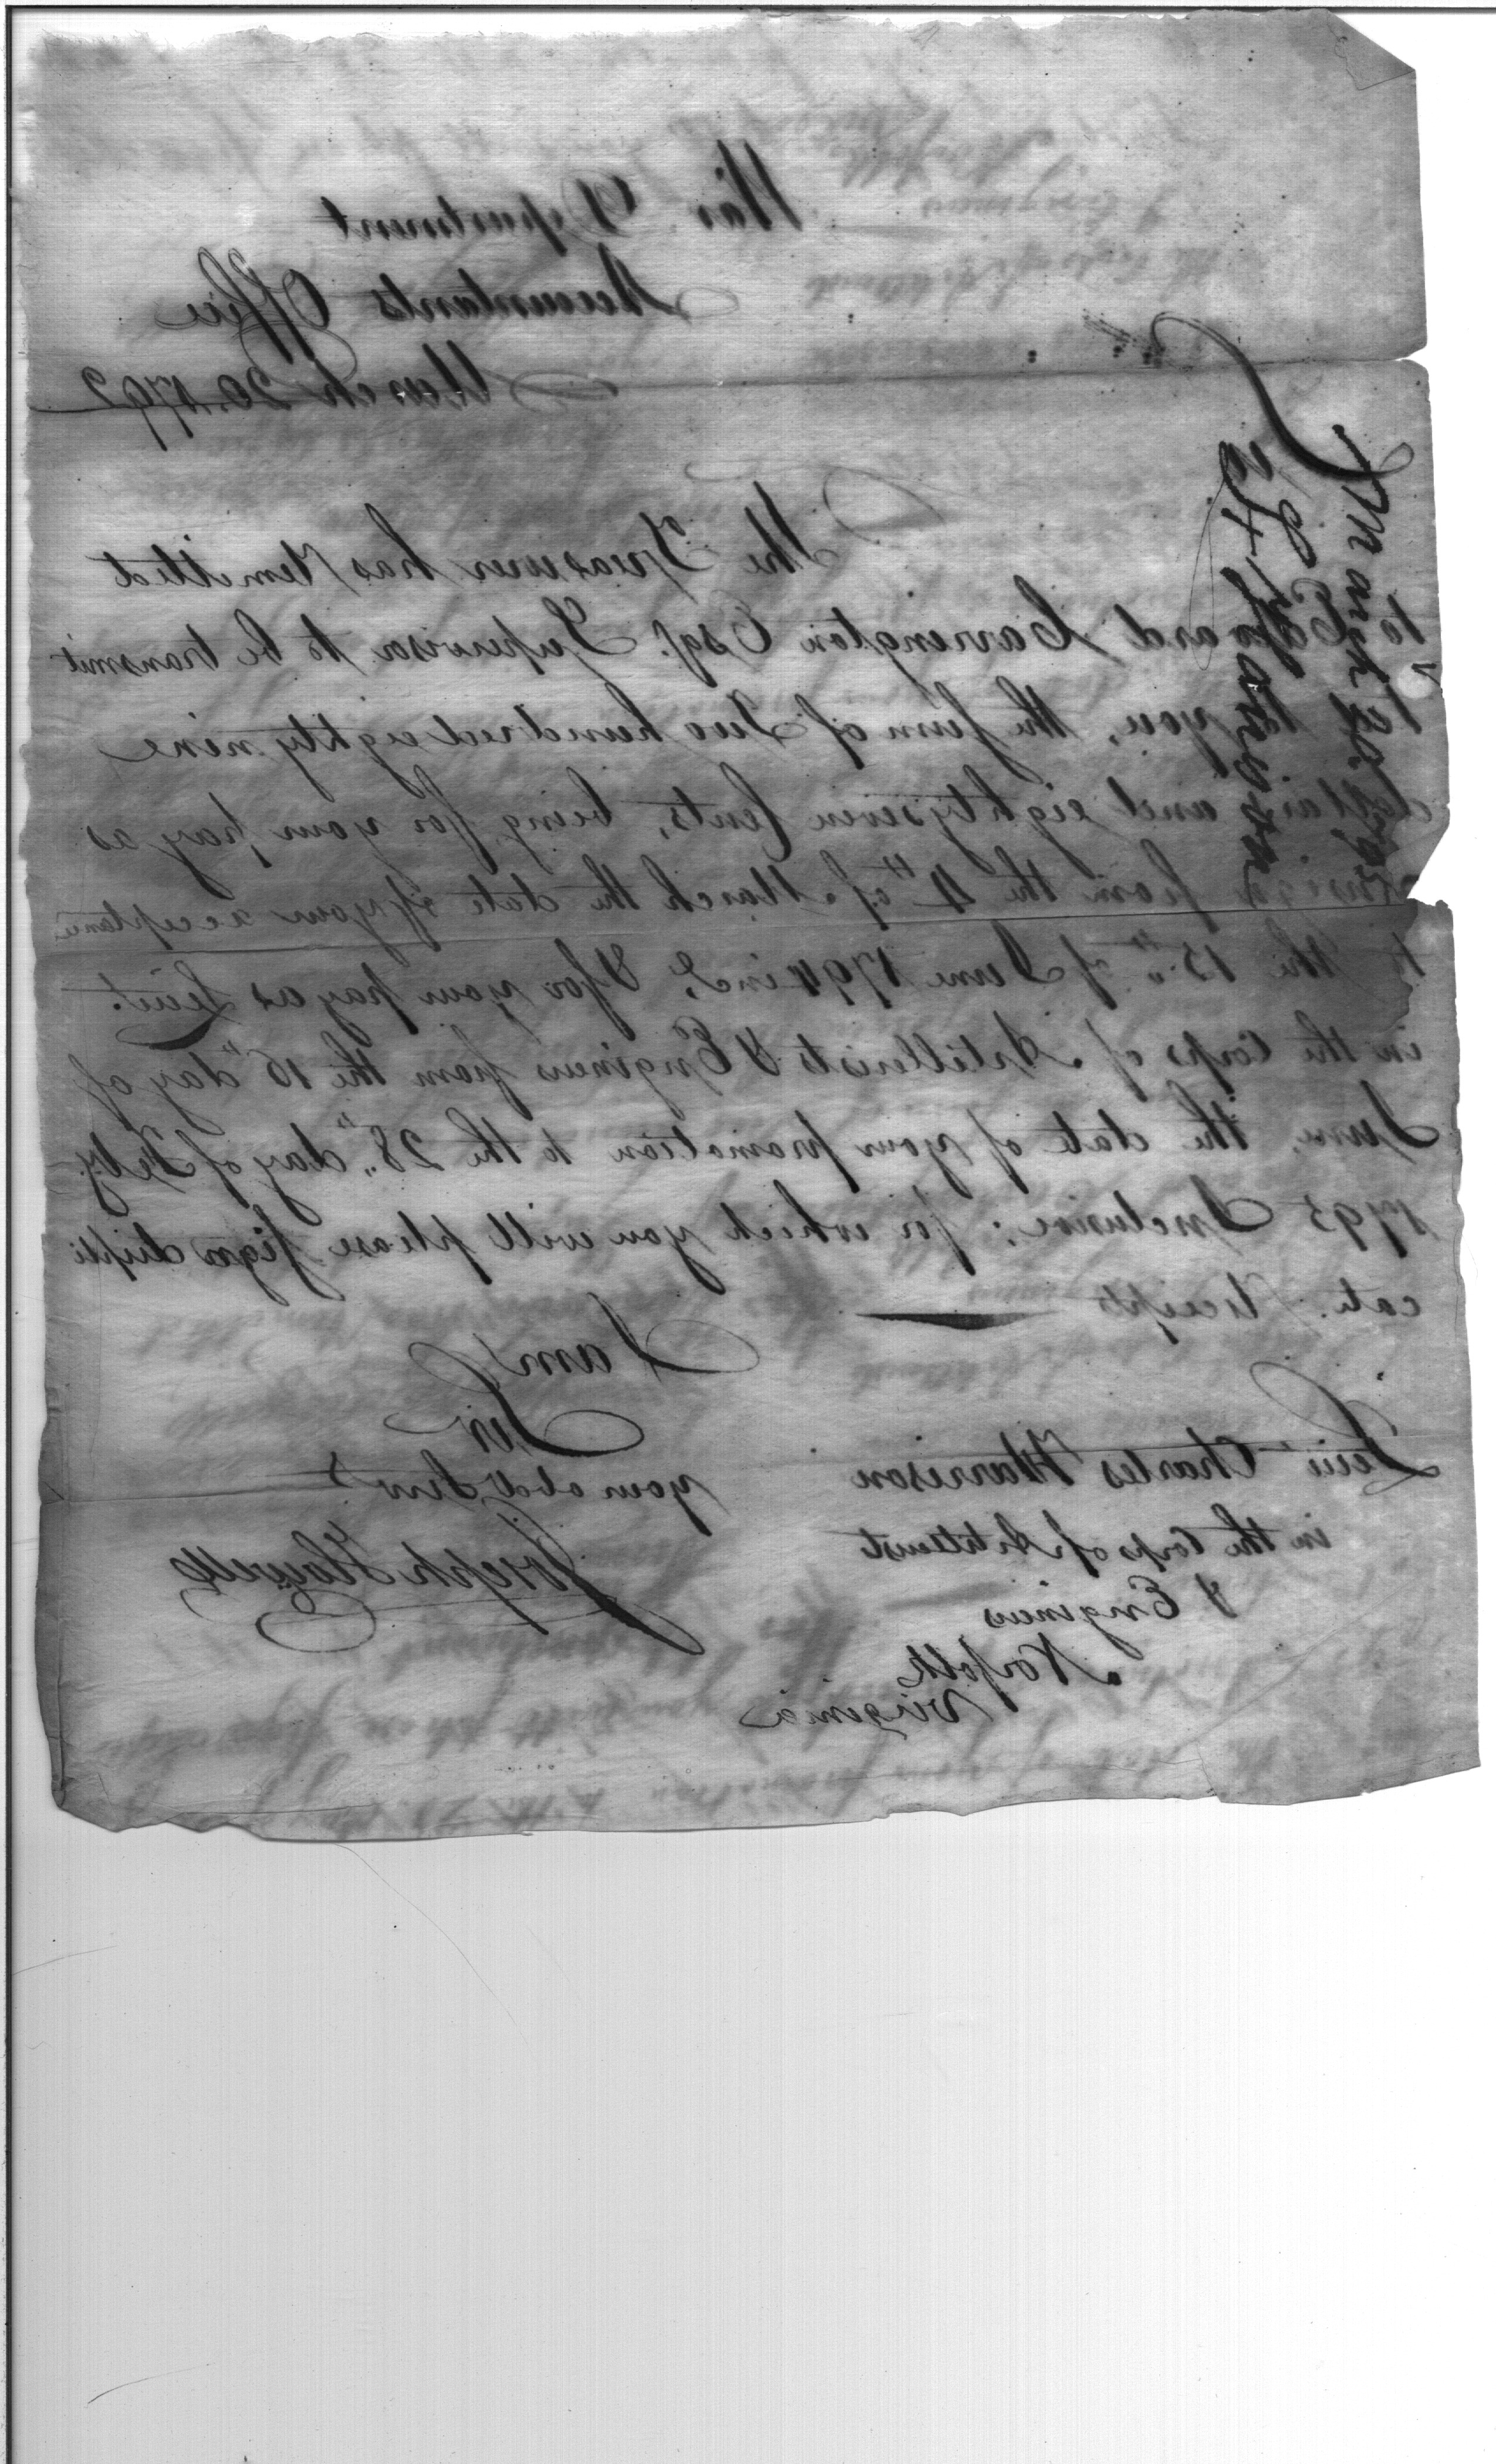 War Department
Accountants Office
March 20. 1795
Sir
The Treasurer has remitted
to Edward Carrington Esqr. Supervisor to be transmit
ted to you, the sum of Two hundred eighty nine
dollars and eighty seven Cents, being for your pay as
from the 4th of March the date of your acceptance
to the 15th of June 1794 incl. & for your pay as Lieut.
in the Corps of Artillerists & Engineers from the 16th day of
June, the date of your promotion to the 28th day of Feby.
1795 Inclusive; for which you will please sign dupli
cate Receipts
I am
Sir
your obed Servt
Joseph Howell
Lieut Charles Harrison
in the Corps of Artillerist
& Engineers
Norfolk
Virginia
March 20. 1795
Harrison